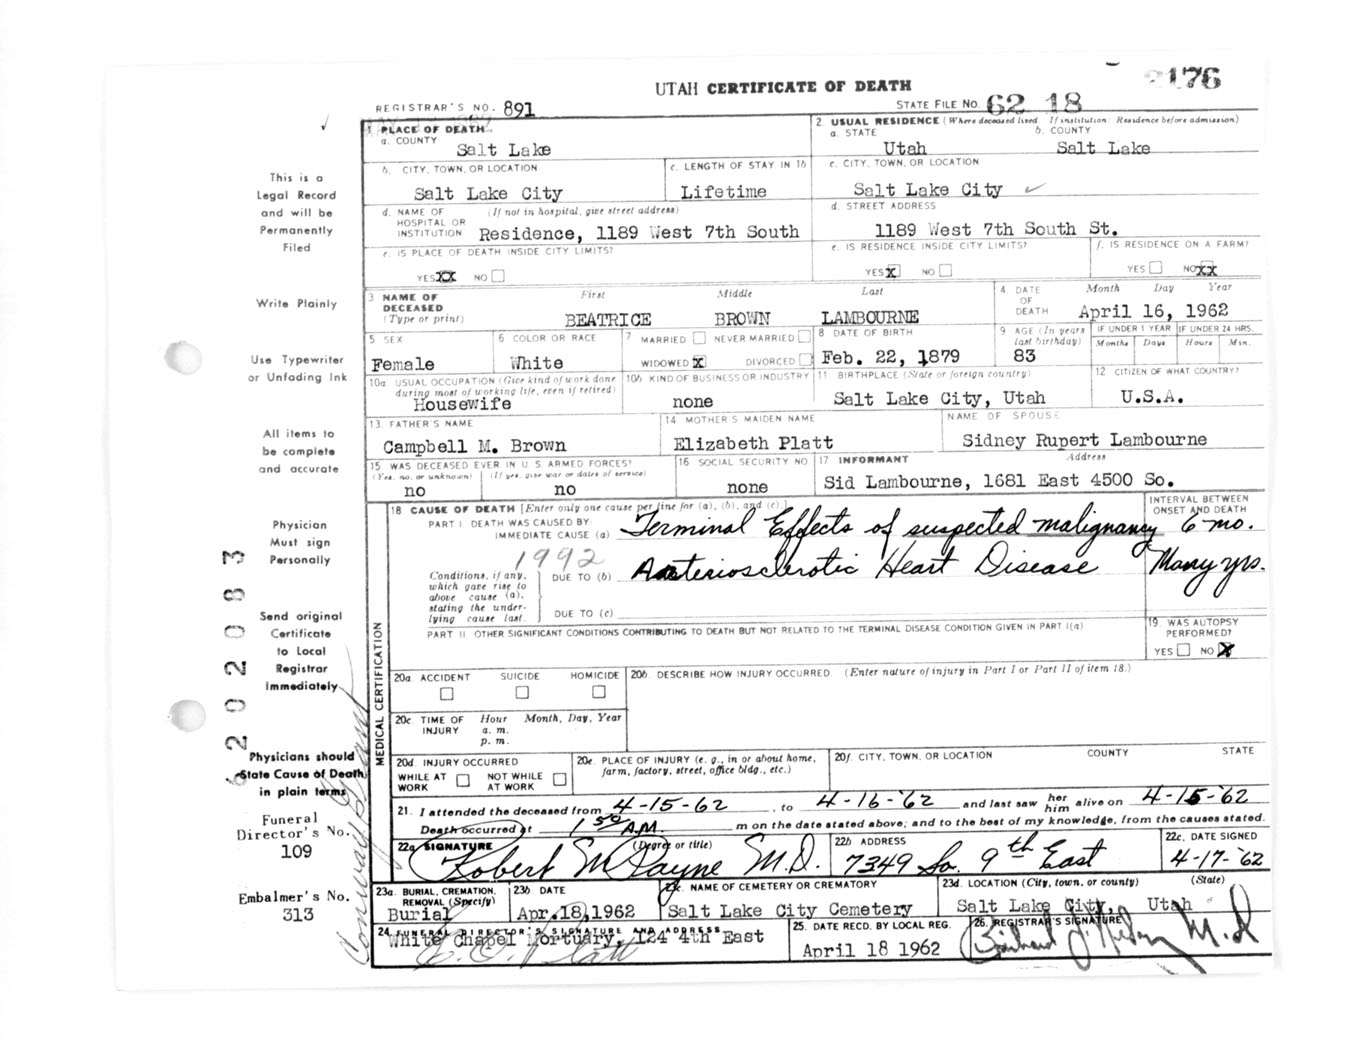 2176
UTAH CERTIFICATE OF DEATH
REGISTRAR'S NO. 891
STATE FILE NO. 62 18
1. PLACE OF DEATH
a. COUNTY
Salt Lake
2. USUAL RESIDENCE (Where deceased lived. If institution: Residence before admission)
a. STATE b. COUNTY
Utah Salt Lake
b. CITY, TOWN, OR LOCATION
Salt Lake City
c. LENGTH OF STAY IN 1b
Lifetime
c. CITY, TOWN, OR LOCATION
Salt Lake City
d. NAME OF HOSPITAL OR INSTITUTION (If not in hospital, give street address)
Residence, 1189 West 7th South
d. STREET ADDRESS
1189 West 7th South St.
e. IS PLACE OF DEATH INSIDE CITY LIMITS?
YES XX NO
e. IS RESIDENCE INSIDE CITY LIMITS?
YES X NO
f. IS RESIDENCE ON A FARM?
YES NO XX
3 NAME OF DECEASED (Type or print)
First Middle Last
BEATRICE BROWN LAMBOURNE
4 DATE OF DEATH
Month Day Year
April 16, 1962
5 SEX
Female
6 COLOR OR RACE
White
7 MARRIED NEVER MARRIED
WIDOWED X DIVORCED
8 DATE OF BIRTH
Feb. 22, 1879
9 AGE (In years last birthday)
83
IF UNDER 1 YEAR
Months Days
IF UNDER 24 HRS.
Hours Min.
10a USUAL OCCUPATION (Give kind of work done during most of working life, even if retired)
Housewife
10b KIND OF BUSINESS OR INDUSTRY
none
11 BIRTHPLACE (State or foreign country)
Salt Lake City, Utah
12 CITIZEN OF WHAT COUNTRY?
U.S.A.
13. FATHER'S NAME
Campbell M. Brown
14 MOTHER'S MAIDEN NAME
Elizabeth Platt
NAME OF SPOUSE
Sidney Rupert Lambourne
15 WAS DECEASED EVER IN U. S. ARMED FORCES?
(Yes, no, or unknown) (If yes, give war or dates of service)
no no
16 SOCIAL SECURITY NO
none
17 INFORMANT Address
Sid Lambourne, 1681 East 4500 So.
MEDICAL CERTIFICATION
18 CAUSE OF DEATH [Enter only one cause per line for (a), (b), and (c).]
INTERVAL BETWEEN ONSET AND DEATH
PART I. DEATH WAS CAUSED BY:
IMMEDIATE CAUSE (a) Terminal Effects of suspected malignancy 6 mo.
1992
Conditions, if any, which gave rise to above cause (a), stating the underlying cause last.
DUE TO (b) Arteriosclerotic Heart Disease Many yrs.
DUE TO (c)
PART II OTHER SIGNIFICANT CONDITIONS CONTRIBUTING TO DEATH BUT NOT RELATED TO THE TERMINAL DISEASE CONDITION GIVEN IN PART I(a)
19. WAS AUTOPSY PERFORMED?
YES NO X
20a. ACCIDENT SUICIDE HOMICIDE
20b. DESCRIBE HOW INJURY OCCURRED. (Enter nature of injury in Part I or Part II of item 18.)
20c. TIME OF INJURY Hour Month, Day, Year
a. m.
p. m.
20d. INJURY OCCURRED
WHILE AT WORK NOT WHILE AT WORK
20e. PLACE OF INJURY (e. g., in or about home, farm, factory, street, office bldg., etc.)
20f. CITY, TOWN, OR LOCATION COUNTY STATE
21. I attended the deceased from 4-15-62, to 4-16-'62 and last saw her him alive on 4-15-'62
Death occurred at 1 50 A.M. m on the date stated above; and to the best of my knowledge, from the causes stated.
22a. SIGNATURE (Degree or title)
Robert M Payne M.D.
22b. ADDRESS
7349 So. 9th East
22c. DATE SIGNED
4-17-'62
23a. BURIAL, CREMATION, REMOVAL (Specify)
Burial
23b. DATE
Apr. 18, 1962
23c. NAME OF CEMETERY OR CREMATORY
Salt Lake City Cemetery
23d. LOCATION (City, town, or county) (State)
Salt Lake City, Utah
24. FUNERAL DIRECTOR'S SIGNATURE AND ADDRESS
White Chapel Mortuary, 124 4th East
25. DATE RECD. BY LOCAL REG.
April 18 1962
26. REGISTRAR'S SIGNATURE
M.D
This is a
Legal Record
and will be
Permanently
Filed
Write Plainly
Use Typewriter
or Unfading Ink
All items to
be complete
and accurate
Physician
Must sign
Personally
Send original
Certificate
to Local
Registrar
Immediately
Physicians should
State Cause of Death
in plain terms
Funeral
Director's No.
109
Embalmer's No.
313